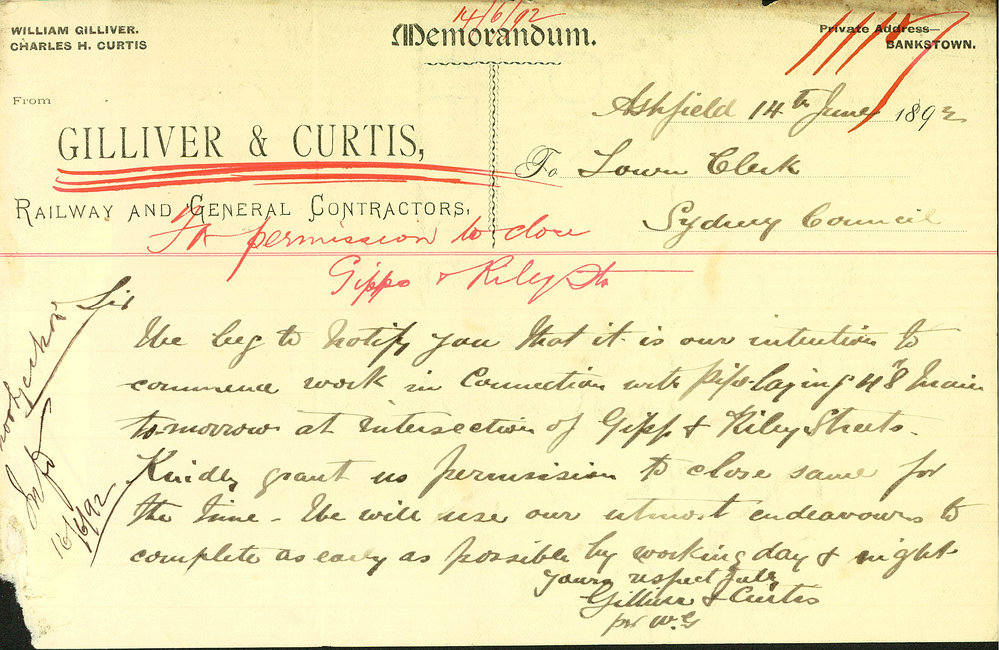 14/6/92
WILLIAM GILLIVER.
CHARLES H. CURTIS
Memorandum.
Private Address—
BANKSTOWN.
From
Ashfield 14th June 1892
GILLIVER & CURTIS,
To Town Clerk
RAILWAY AND GENERAL CONTRACTORS,
Sydney Council
For permission to close
Gipps & Riley Sts
Sir
We beg to notify you that it is our intention to
commence work in connection with pipe-laying 48" Main
to-morrow at intersection of Gipps & Riley Streets.
Kindly grant us permission to close same for
the time - We will use our utmost endeavours to
complete as early as possible by working day & night
Yours respectfully
Gilliver & Curtis
per W.G
16/6/92